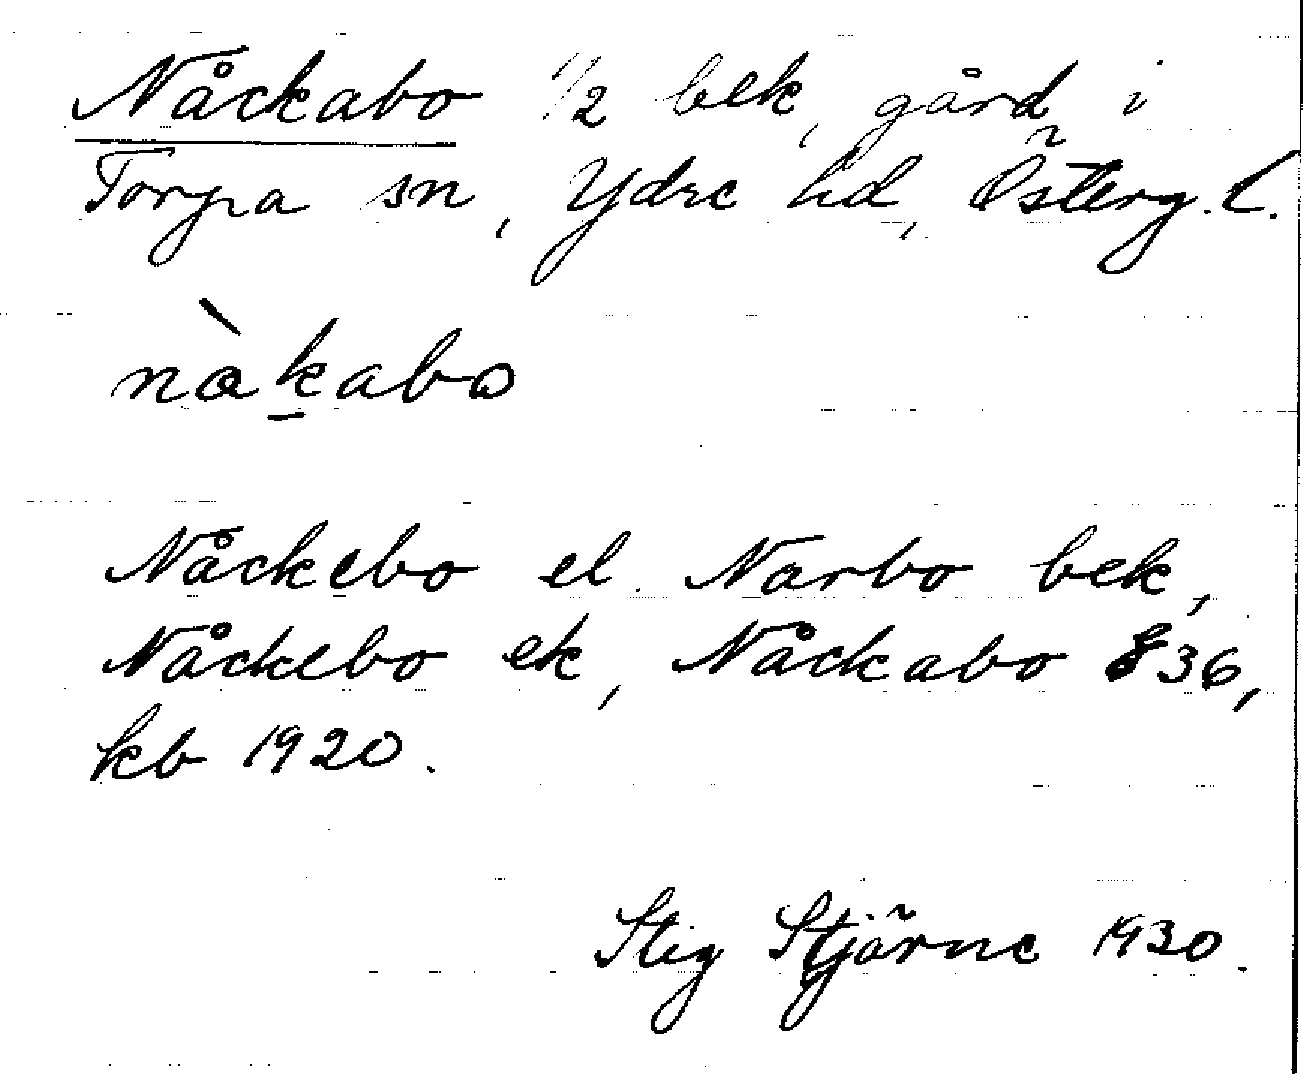 Nåckabo 1/2 bek, gård i
Torpa sn, Ydre hd, Österg. l.
nàkabo
Nåckebo el. Narbo bek,
Nåckebo ek, Nåckabo 836,
kb 1920.
Stig Stjärne 1930.